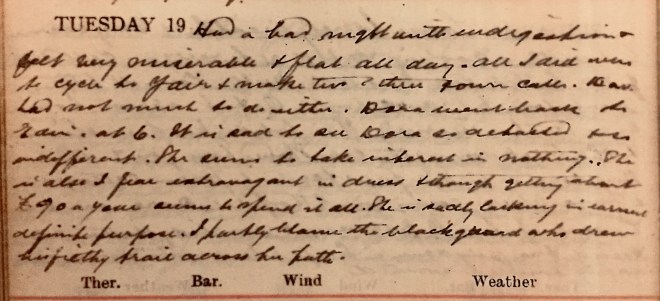 TUESDAY 19 Had a bad night with indigestion &
felt very miserable & flat all day. All I did was
to cycle to Yair & make two other town calls. Dav.
had not much to do either. Dora went back to
Edin. at 6. It is sad to see Dora so debased &
indifferent. She seems to take interest in nothing. She
is also I fear extravagant in dress & though getting about
£90 a year seems to spend it all. She is sadly lacking in earnest
definite purpose. I partly blame the blackguard who drew
his filthy trail across her path.
Ther. Bar. Wind Weather